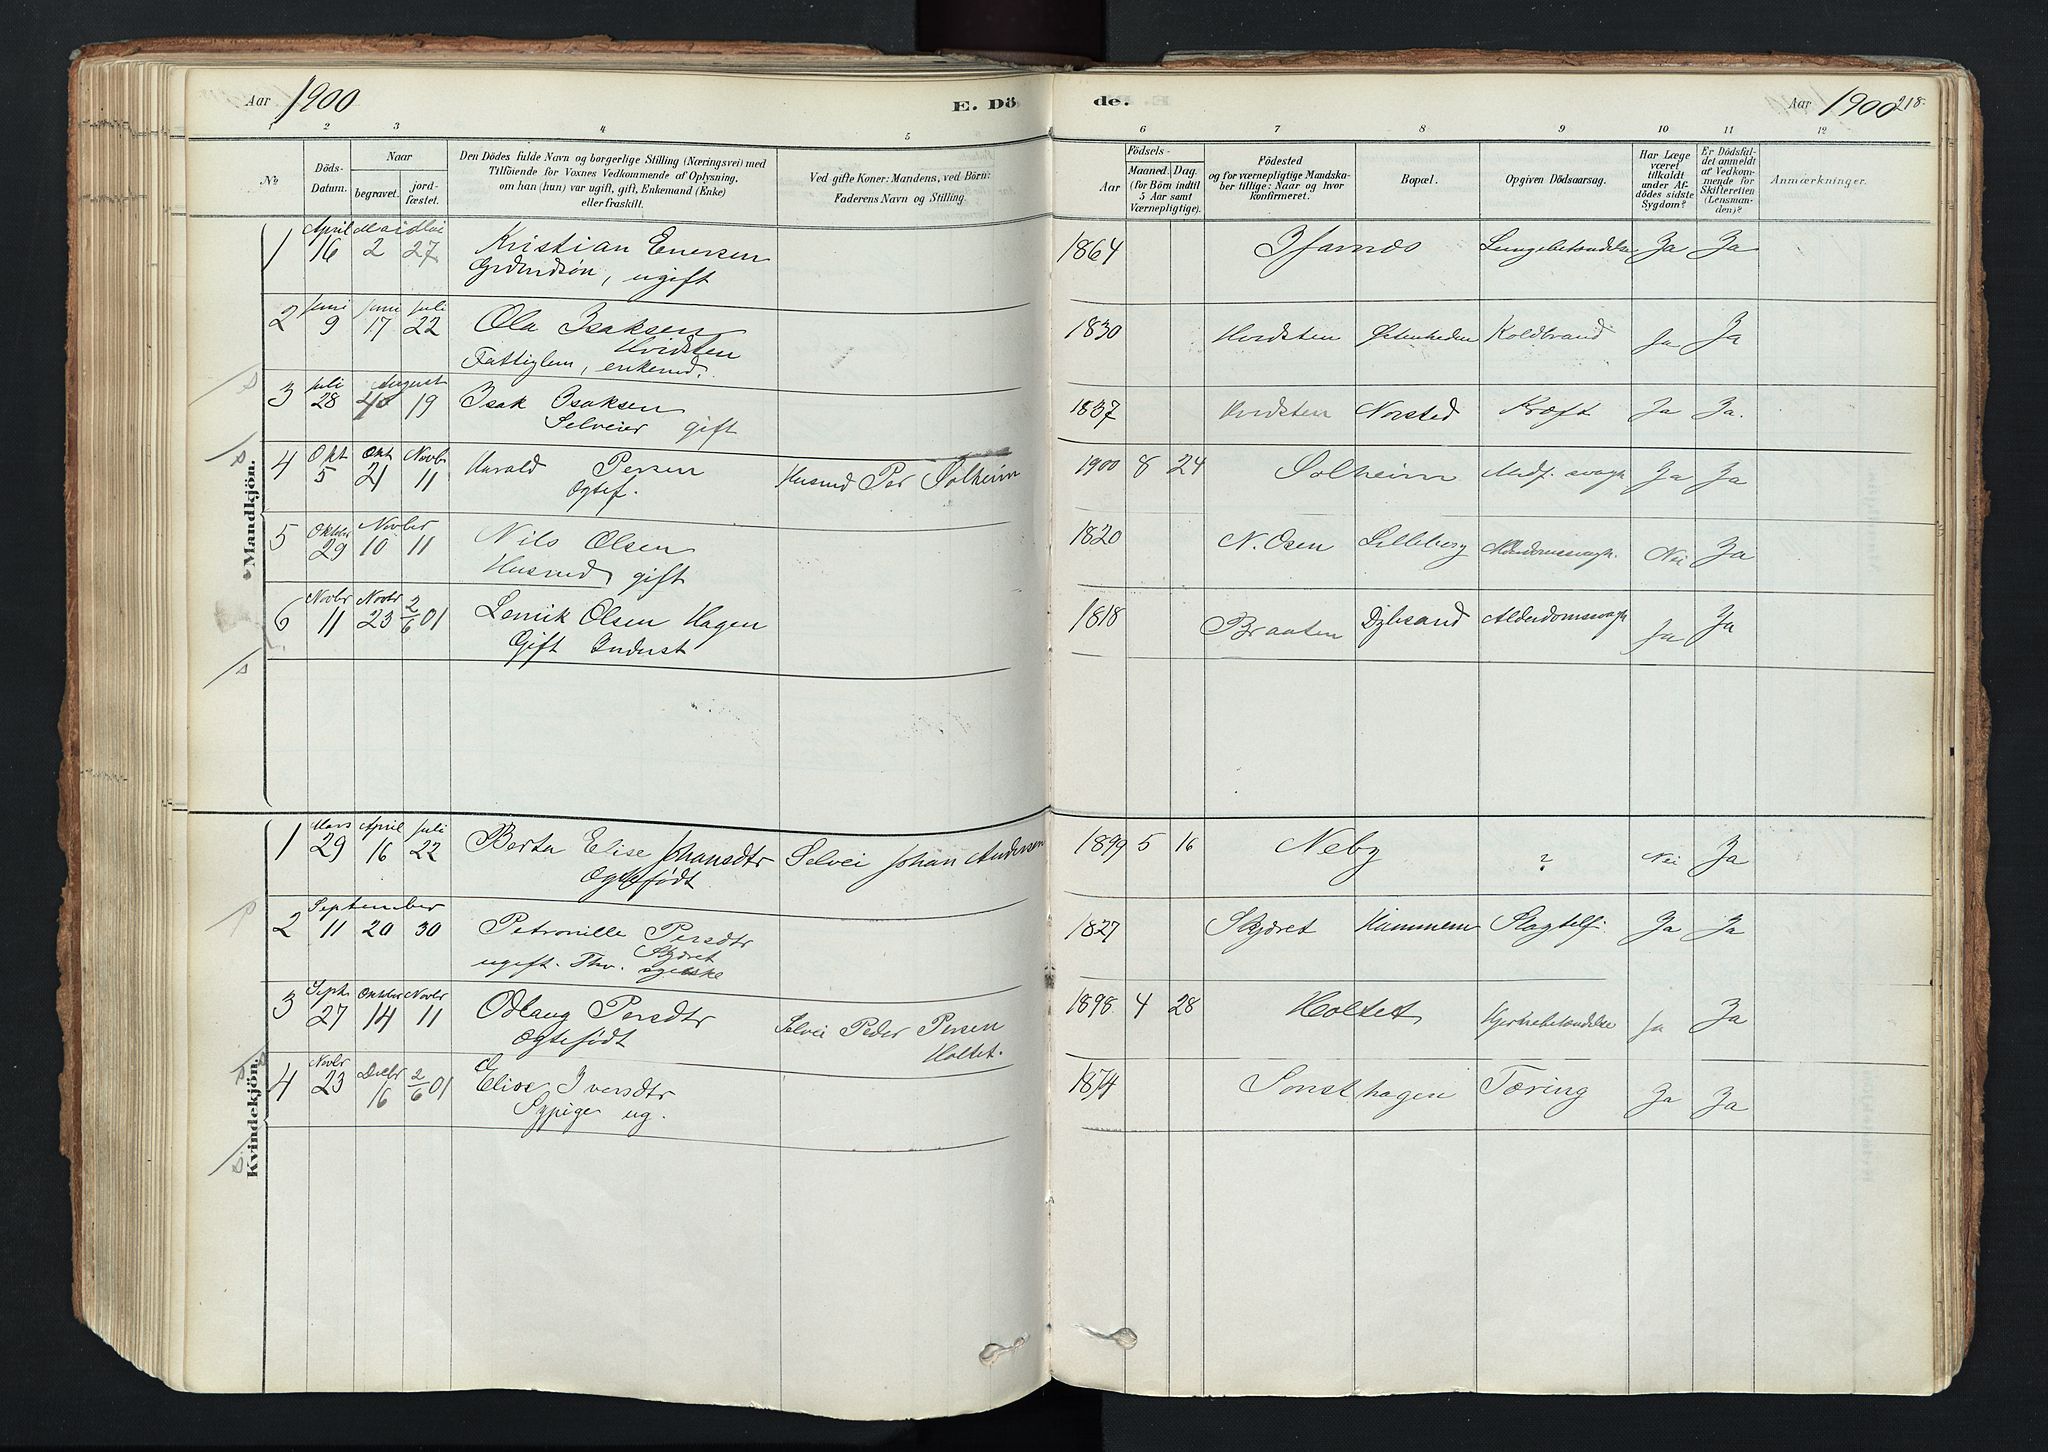 Aar 1900
E. Dö de.
Aar 1900 218.
1 2 3 4 5 6 7 8 9 10 11 12
No
Döds-Datum.
Naar
begravet.
jord-fæstet.
Den Dödes fulde Navn og borgerlige Stilling (Næringsvei) med
Tilföiende for Voxnes Vedkommende af Oplysning,
om han (hun) var ugift, gift, Enkemand (Enke)
eller fraskilt.
Ved gifte Koner: Mandens, ved Börn:
Faderens Navn og Stilling.
Födsels-
Aar
Maaned. Dag.
(for Börn indtil
5 Aar samt
Værnepligtige).
Födested
og for værnepligtige Mandska-
ber tillige: Naar og hvor
konfirmeret.
Bopæl.
Opgiven Dödsaarsag.
Har Læge
været
tilkaldt
under Af-
dödes sidste
Sygdom?
Er Dödsfal-
det anmeldt
af Vedkom-
mende for
Skifteretten
(Lensman-
den)?
Anmærkninger.
Mandkjön.
1 April 16 Mai 2 27 Kristian Enersen 1864 Lungebetændelse Ja Ja
ugift
2 Juni 9 Juni 17 Juli 22 Ola Isaksen 1830 Hvidsten Østenheden Koldbrand Ja Ja
Hvidsten
Fattiglem, enkemd.
3 Juli 28 August 19 Isak Isaksen 1837 Hvidsten Norsted Kræft Ja Ja.
Selveier gift
4 Okt 5 Okt 21 Novbr 11 Harald Persen Husmd Per Solheim 1900 8 24 Solheim Medf. svagh Ja Ja
Ogtef.
5 Oktober 29 Novber 10 11 Nils Olsen 1820 N. Osen Lilleberg Alderdomssvagh. Nei Ja
Husmd gift
6 Novbr 11 Novbr 23 2/6 01 Lemik Olsen Hagen 1818 Braaten Alderdomssvagh Ja Ja
Gift Inderst
Kvindekjön.
1 Mars 29 April 16 Juli 22 Berta Elise Johansdtr Selvei Johan Andersen 1899 5 16 Neby ? Nei Ja
Ogtefödt
2 September 11 20 30 Petronille Persdtr 1827 Skjæret Hammem Slagtilf. Ja Ja
Skjæret
ugift.
3 Septr 27 Oktober 14 Novbr 11 Odlaug Persdtr Selvei Peder Persen 1898 4 28 Holtet Hjernebetændelse Ja Ja
Ogtefödt Holtet.
4 Novbr 23 Decbr 16 2/6 01 Elise Iversdtr 1874 Sonsthagen Tæring Ja Ja
Sypige ug.